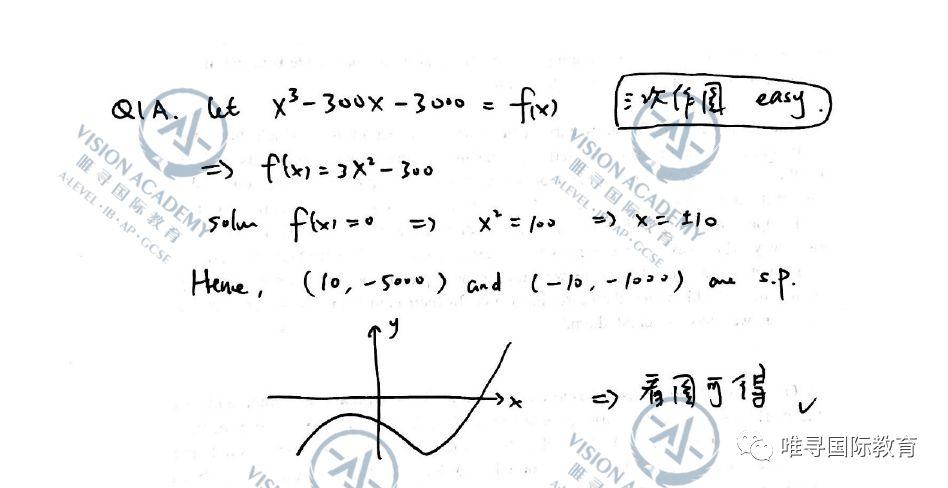 Q1A. let x³-300x-3000 = f(x) 三次作图 easy.
=> f'(x) = 3x²-300
solve f'(x)=0 => x²=100 => x=±10
Hence, (10, -5000) and (-10, -1000) are s.p.
y
x
=> 看图可得 ✓
VISION ACADEMY
唯寻国际教育
A-LEVEL·IB·AP·GCSE
VISION ACADEMY
唯寻国际教育
A-LEVEL·IB·AP·GCSE
VISION
唯寻
VISION
唯寻国际教育